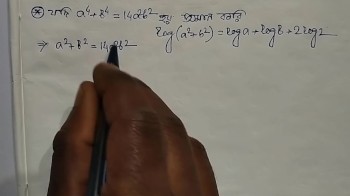 ⊛ যদি a⁴+b⁴=14a²b² হয় প্রমাণ করি
log(a²+b²)=log a+log b+2log2
⇒ a⁴+b⁴=14a²b²